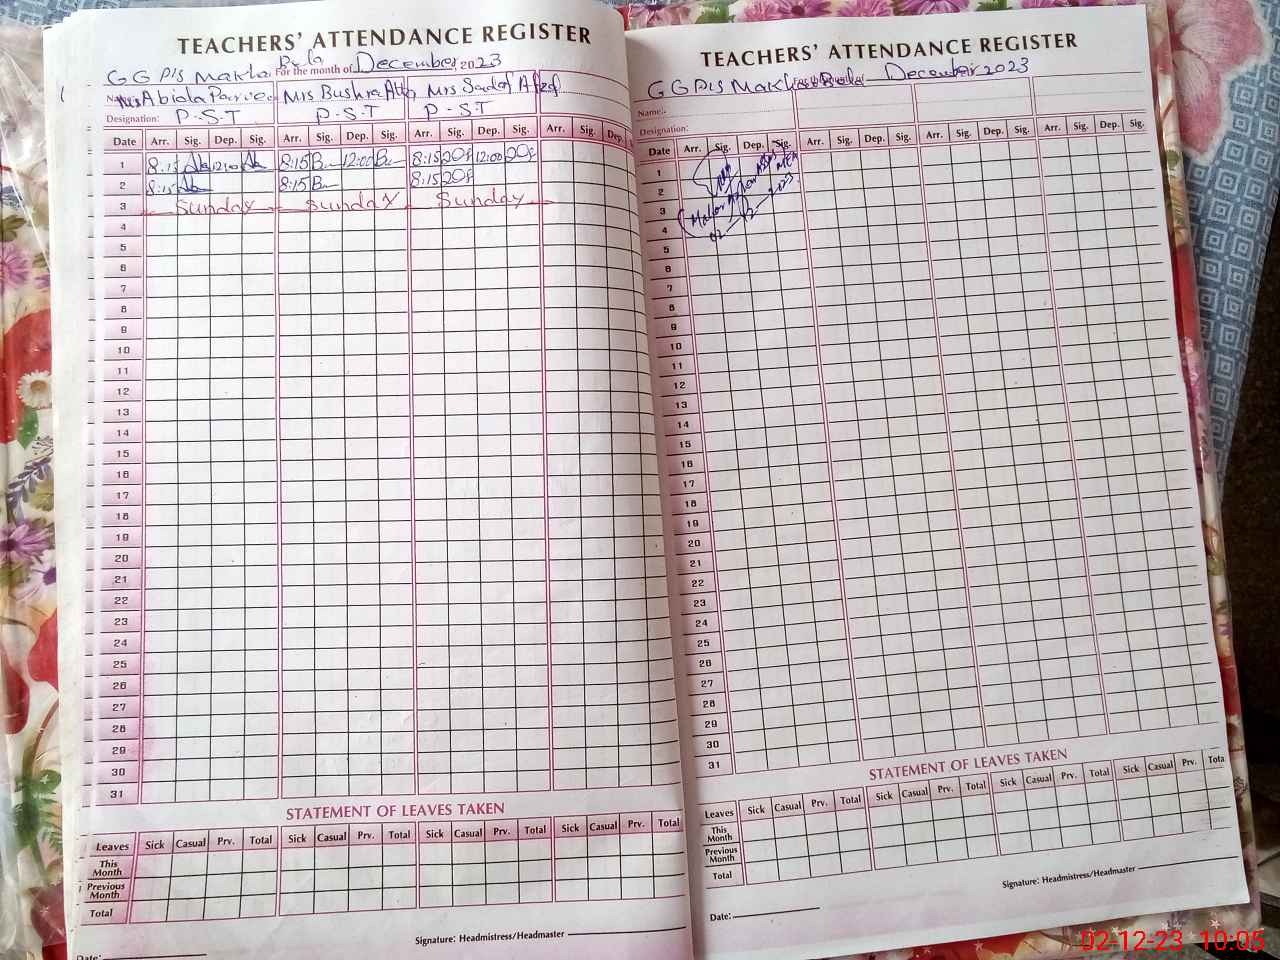 TEACHERS' ATTENDANCE REGISTER
GGP/S Makha Bela For the month of December 2023
Mrs Bushra Mrs Sadaf
Designation: P-S-T P-S-T P-S-T
Date Arr. Sig. Dep. Sig. Arr. Sig. Dep. Sig. Arr. Sig. Dep. Sig. Arr. Sig. Dep.
1 8:15 12:00 8:15 12:00 8:15 12:00
2 8:15 8:15 8:15
3 Sunday Sunday Sunday
4
5
6
7
8
9
10
11
12
13
14
15
16
17
18
19
20
21
22
23
24
25
26
27
28
29
30
31
STATEMENT OF LEAVES TAKEN
Leaves Sick Casual Prv. Total Sick Casual Prv. Total Sick Casual Prv. Total Sick Casual Prv. Total
This Month
Previous Month
Total
Signature: Headmistress/Headmaster
Date:
TEACHERS' ATTENDANCE REGISTER
GGP/S Makha Bela December 2023
Name:
Designation:
Date Arr. Sig. Dep. Sig. Arr. Sig. Dep. Sig. Arr. Sig. Dep. Sig. Arr. Sig. Dep. Sig.
1
2
3
4
02-12-2023
5
6
7
8
9
10
11
12
13
14
15
16
17
18
19
20
21
22
23
24
25
26
27
28
29
30
31
STATEMENT OF LEAVES TAKEN
Leaves Sick Casual Prv. Total Sick Casual Prv. Total Sick Casual Prv. Total Sick Casual Prv. Tota
This Month
Previous Month
Total
Signature: Headmistress/Headmaster
Date:
02-12-23 10:05